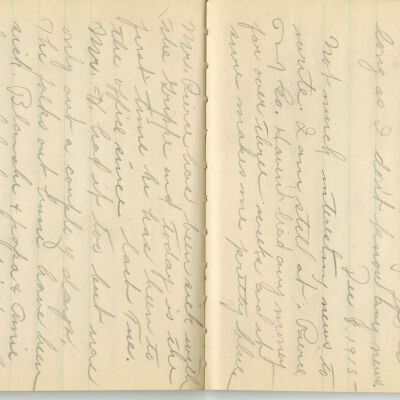 long as I don't know any news.
Dec 8, 1915 -
Not much interesting news to
write. I am still at Pierce
& Co. Haven't had any money
for over three weeks and it
sure makes me pretty blue
Mr. Pierce has been sick with
the Grippe and today is the
first time he has been to
the office since last Tue.
Mr. H had it too but was
only out a couple of days.
The folks out home have been
sick Blanche & papa & Amie